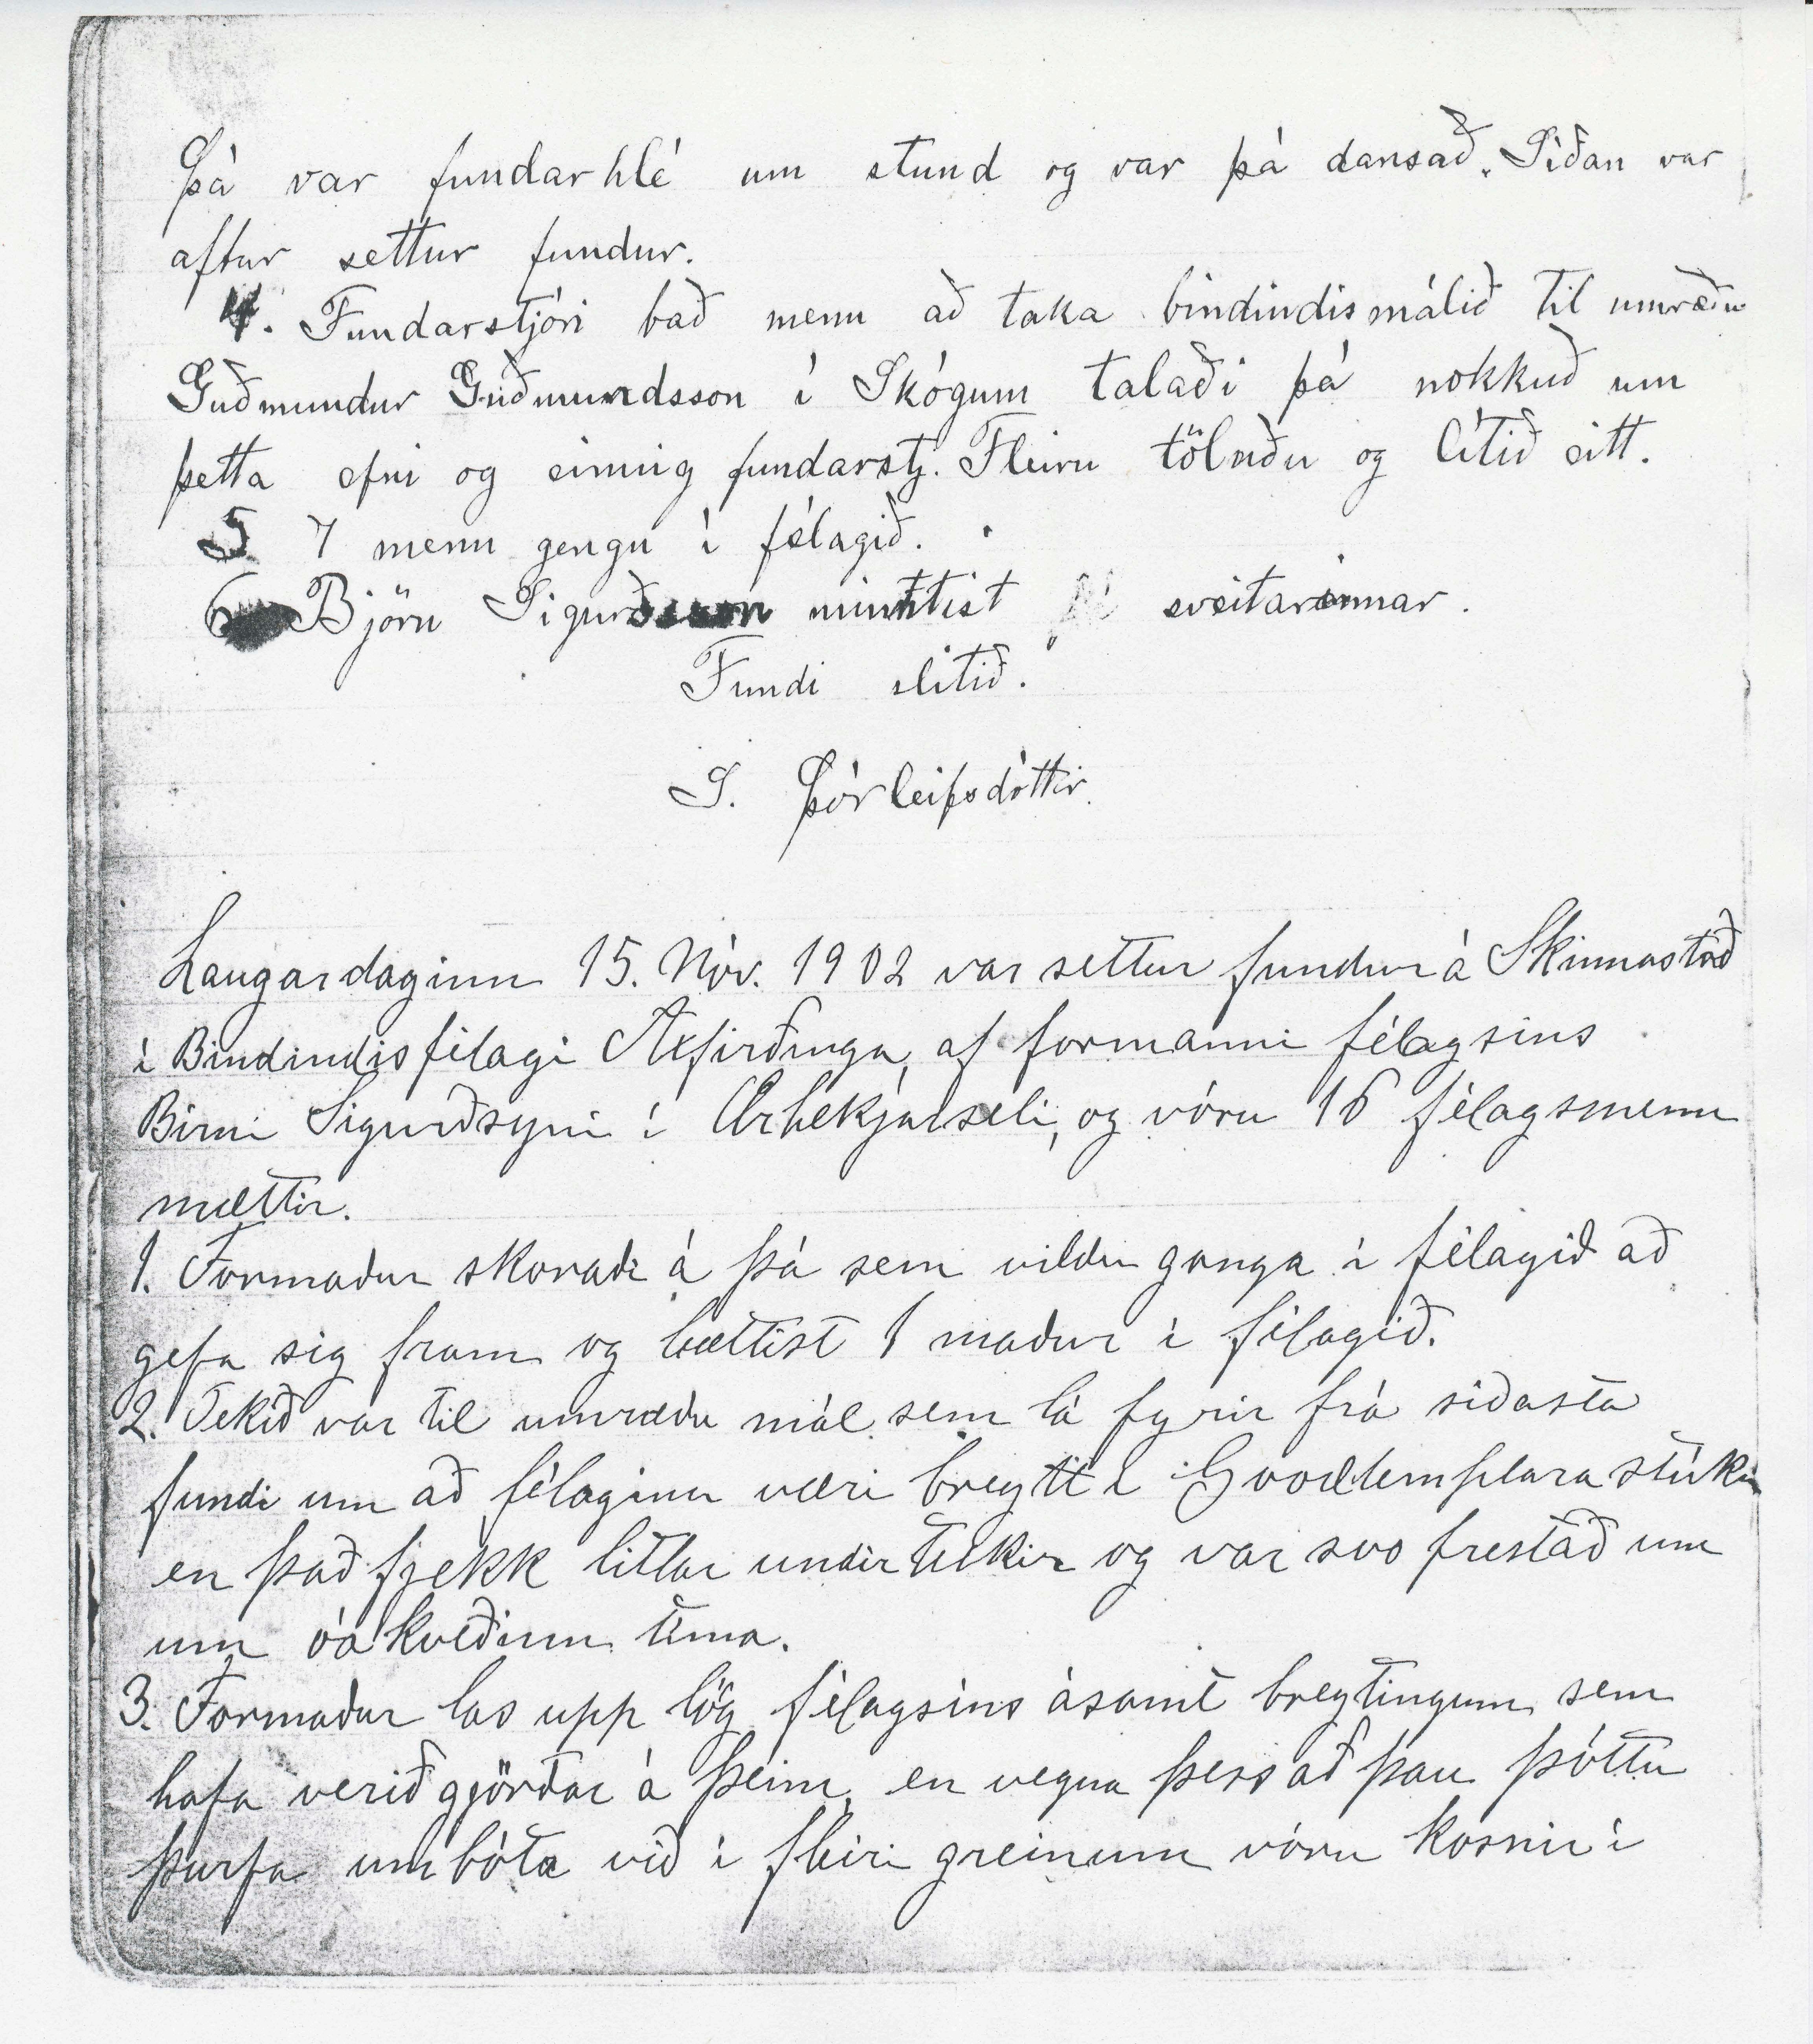 Þá var fundarhlé um stund og var þá dansað. Síðan var
aftur settur fundur.
4. Fundarstjóri bað menn að taka bindindismálið til umræðu
Guðmundur Guðmundsson í Skógum talaði þá nokkuð um
þetta efni og einnig fundarstj. Fleiru töluðu og lítið eitt.
5 7 menn gengu í félagið.
6 Björn Sigurðsson minntist sveitarinnar.
Fundi slitið.
S. Þórleifsdóttir.
Laugardaginn 15. Nóv. 1902 var settur fundur á Skinnastað
í Bindindisfélagi Axfirðinga, af formanni félagsins
Birni Sigurðsyni í Ærlækjarseli, og vóru 16 félagsmenn
mættir.
1. Formaður skoraði á þá sem vildu ganga í félagið að
gefa sig fram og bættist 1 maður í félagið.
2. Tekið var til umræðu mál sem lá fyrir frá síðasta
fundi um að félaginu væri breytt í Goodtemplara stúku
en það fjekk litlar undirtektir og var svo frestað um
um óákveðinn tíma.
3. Formaður las upp lög félagsins ásamt breytingum sem
hafa verið gjörðar á þeim, en vegna þess að þau þóttu
þurfa umbóta við í fleiri greinum vóru kosnir í